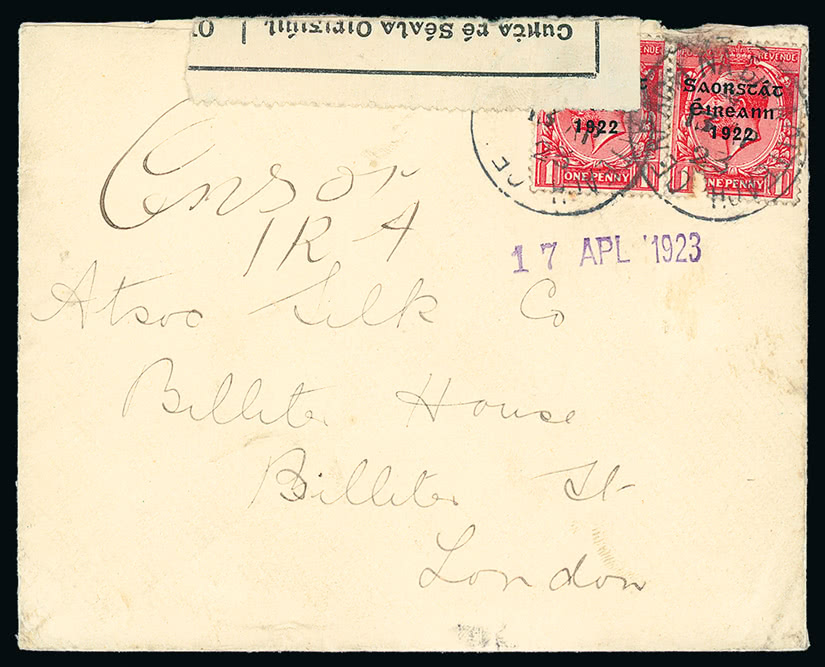 Cunta ré Séala Oifigiúil | O
REVENUE
REVENUE
Saorstát
Éireann
1922
1922
ONE PENNY
ONE PENNY
Censor
IRA
17 APL 1923
Atsoc Silk Co
Billiter House
Billiter St
London